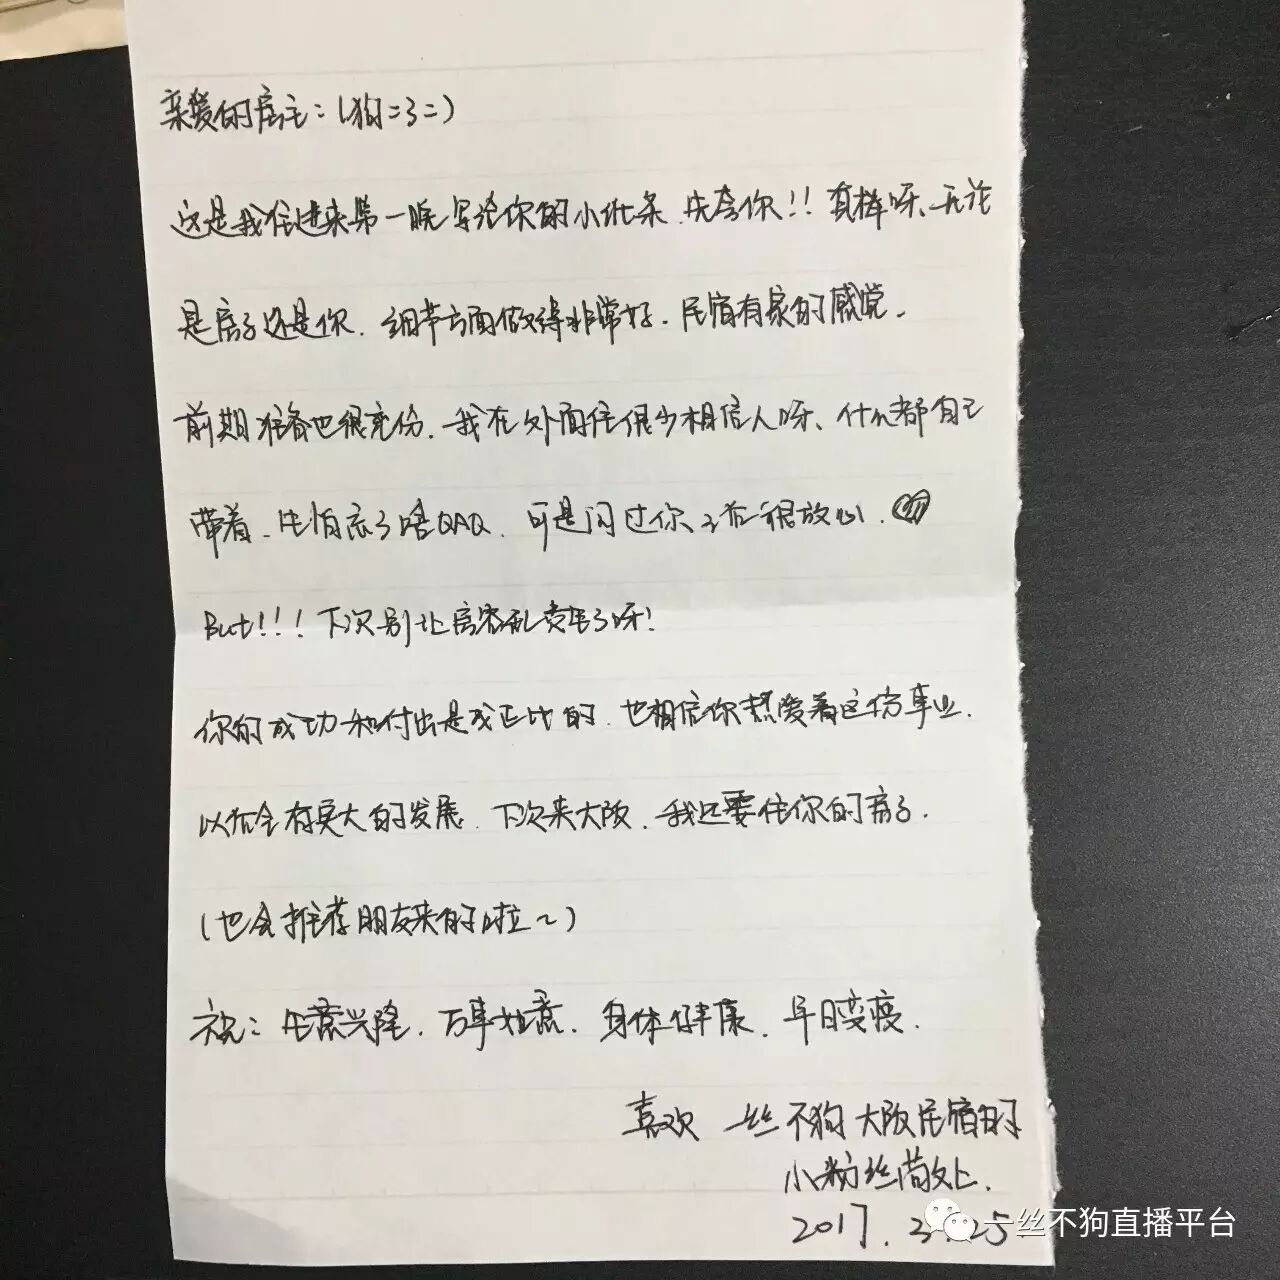 亲爱的房主：（狗=3=）
这是我住进来第一晚写给你的小纸条，先夸你！！真棒呀、无论
是房子还是你，细节方面做得非常好，民宿有家的感觉，
前期准备也很充份，我在外面住很少相信人呀、什么都自己
带着，生怕忘了啥QAQ，可是问过你之后很放心，
But！！！下次别让房客乱卖萌了呀！
你的成功和付出是成正比的，也相信你热爱着这份事业，
以后会有更大的发展，下次来大阪，我还要住你的房子，
（也会推荐朋友来的啦～）
祝：生意兴隆，万事如意，身体健康，早日变瘦，
喜欢 一丝不狗大阪民宿的
小粉丝敬上，
2017.3.25
一丝不狗直播平台